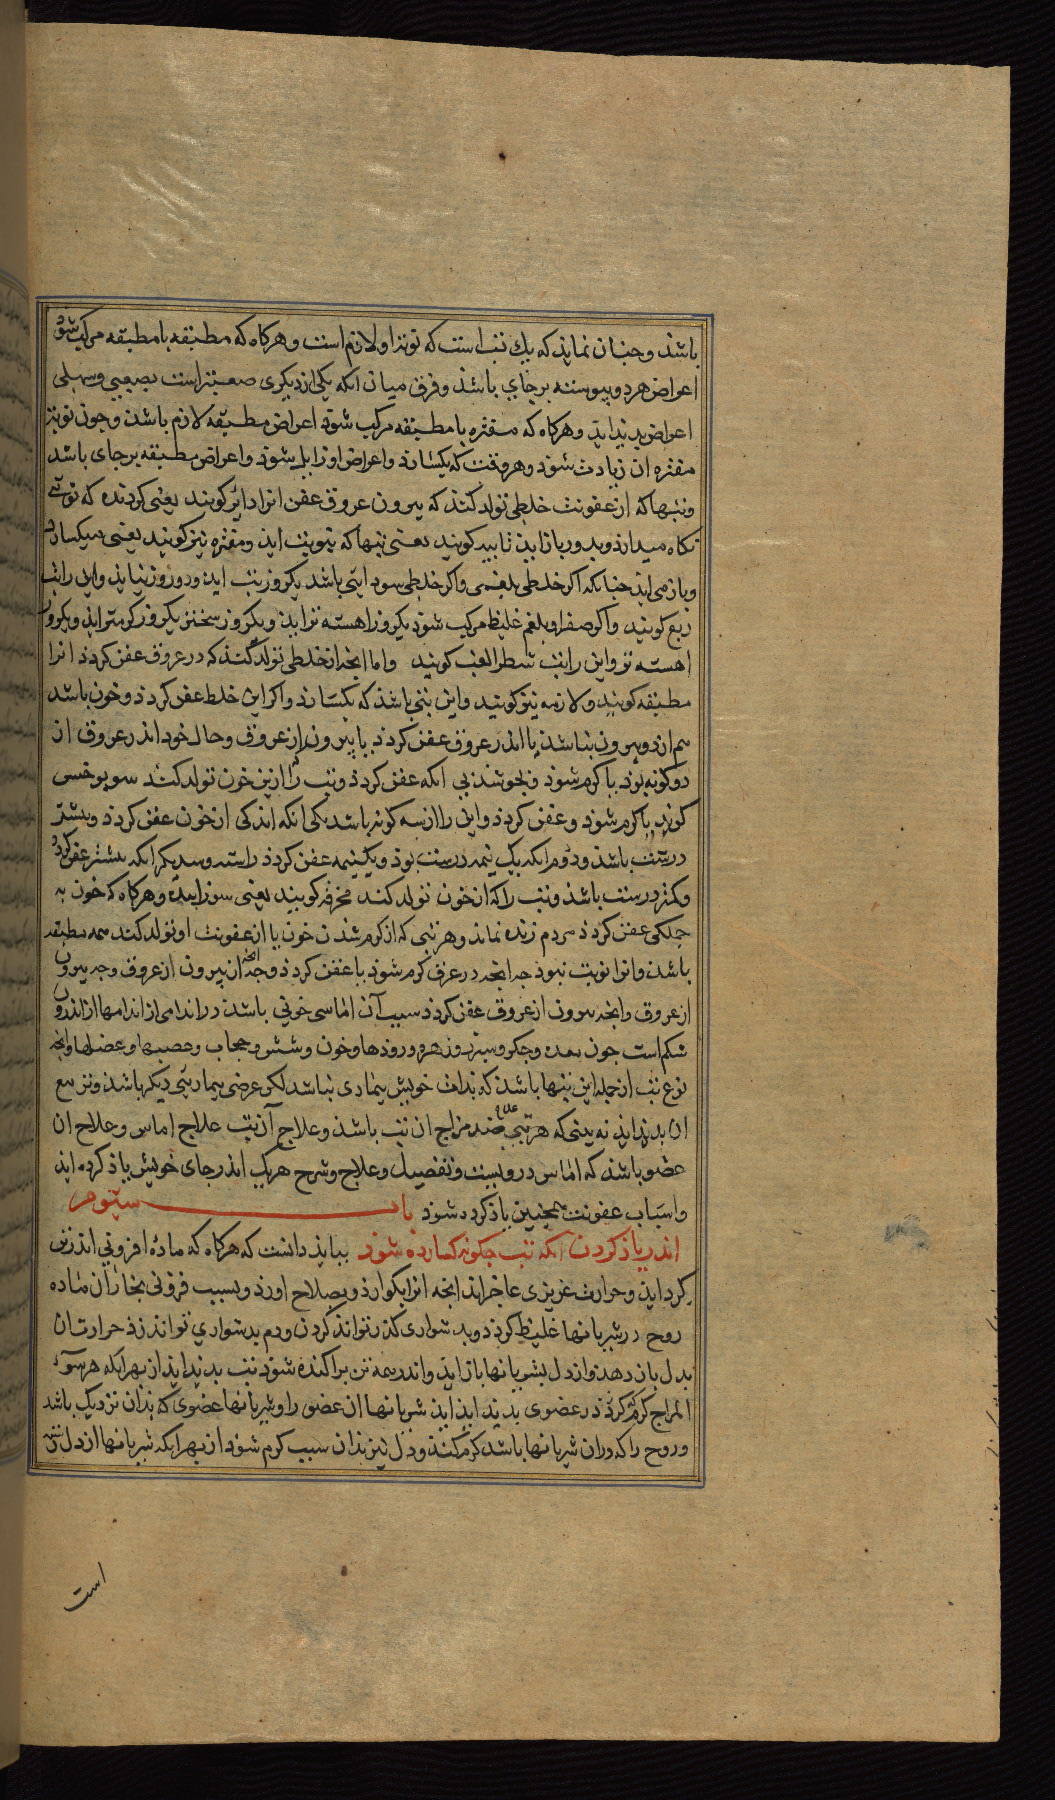 باشذ و جنان نمایذ که یك تب است که نوبهٔ او لازم است و هرکاه که مطبقه با مطبقه مرکب شوذ
اعراض هر دو پیوسته بر جای باشذ و فرق میان انکه یکی از دیکری صعبتر است بصعبی و سهلی
اعراض بدید اید و هرکاه که مفتره با مطبقه مرکب شوذ اعراض مطبقه لازم باشذ و جون نوبهٔ
مفتره ان زیادت شوذ و هر وقت که بکسارذ و اعراض او زایل شوذ و اعراض مطبقه بر جای باشد
و تبها که از عفونت خلطی تولد کند که بیرون عروق عفن انرا دایر کویند یعنی کردنده که نوبتی
نکاه میدارذ و بدور باز اید نایبه کویند یعنی تبها که بنوبت اید و مفتره نیز کویند یعنی میکسارد
و باز می اید جنانکه اکر خلطی بلغمی و اکر خلطی سودایی باشد یکروز تب اید و دو روز نیاید و این را تب
ربع کویند و اکر صفرا و بلغم غلیظ مرکب شوذ یکروز اهسته تر اید و یکروز سختتر یکروز کرمتر اید و یکروز
اهسته تر و این را تب شطر الغب کویند و اما انجه از خلطی تولد کند که در عروق عفن کردذ انرا
مطبقه کویند و لازمه نیز کویند و این تبی باشد که بکسارذ و اکر این خلط عفن کردذ و خون باشد
هم از دو بیرون نباشذ یا اندر عروق عفن کردذ یا بیرون از عروق و حال خود اندر عروق ان
دو کونه بوذ یا کرم شوذ و بجوشذ بی انکه عفن کردذ و تب را از بن خون تولد کند سونوخس
کویند یا کرم شوذ و عفن کردذ و این را از سه کونه باشد یکی انکه اندکی از خون عفن کردذ و بیشتر
درست باشذ و دوم انکه یك نیمه درست بوذ و یك نیمه عفن کردذ راست و سدیکر انکه بیشتر عفن کردذ
و کمتر درست باشذ و تب را که از خون تولد کند محرقه کویند یعنی سوزاننده و هرکاه که خون به
جملکی عفن کردذ مردم زنده نماند و هر تبی که از کرم شدن خون یا از عفونت او تولد کند همه مطبقه
باشذ و انرا نوبت نبوذ جه انجه در عرق کرم شوذ یا عفن کردذ و جه انجه از بیرون از عروق و جه بیرون
از عروق و انجه بیرون از عروق عفن کردذ سبب آن اماسی خونی باشذ در اندامی از اندامها از اندرون
شکم است جون معده و جکر و سبرز و زهره و روذها و خون و شش و حجاب و عصبها و عضلها و انجه
نوع تب از جمله این تبها باشذ که بذات خویش بیماری نباشد لکن عرض بیماریی دیکر باشذ و تتبع
ان بدید اید نه بینی که هر تبی ضد مزاج ان تب باشذ و علاج آن تب علاج اماس و علاج ان
عضو باشذ که اماس در ویست و تفصیل و علاج و شرح هر یك اندر جای خویش یاذ کرده اید
و اسباب عفونت همجنین یاذ کرده شوذ باب سیوم
اندر یاذ کردن انکه تب جکونه کسارده شوذ ببایذ دانست که هرکاه که مادهٔ افزونی اندر تن
کرد اید و حرارت غریزی عاجز اید انجه انرا بکوارذ و بصلاح اورذ و بسبب فزونی بخار آن ماده
روح در شریانها غلیظ کردذ و بدشواری کذر تواند کردن و دم بدشواری تواند زذ حرارت ان
بدل باز دهذ و از دل بشریانها باز اید و اندر همه تن براکنده شوذ تب بدید اید از بهر انکه هر سوء
المزاج کرم که در عضوی بدید اید شریانها ان عضو را و شریانها عضوی که بذان نزدیك باشد
و روح را که در ان شریانها باشد کرم کند و دل نیز بذان سبب کرم شوذ از بهر انکه شریانها از دل رسته
است